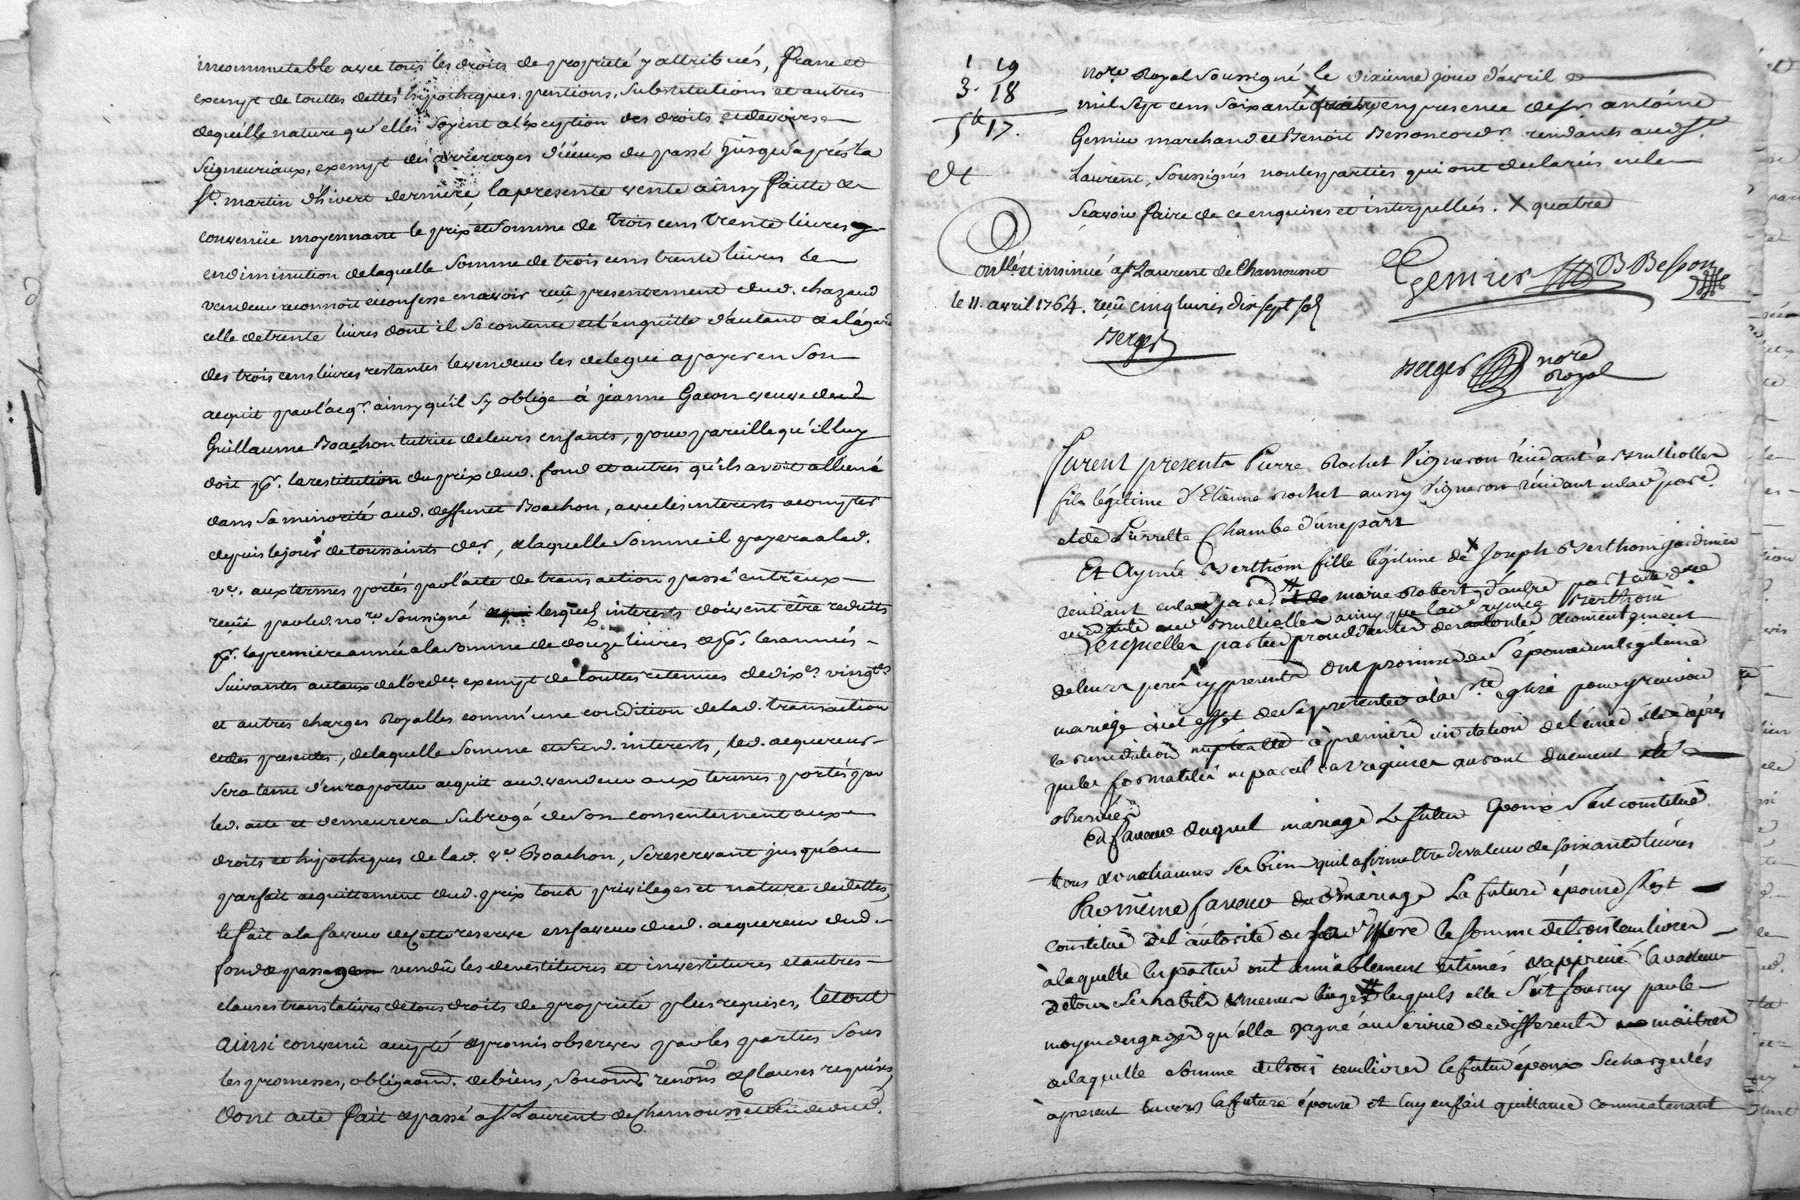 incommutable avec tous les droits de proprieté y attribués, franc et
exempt de touttes dettes hypotheques, pentions, substitutions et autres
de quelle nature qu'elles soyent a l'exception des droits et devoirs
seigneuriaux, exempt des arrerages d'iceux du passé jusqu'aprés la
St. martin d'hivert derniere, la presente vente ainsy faitte et
convenüe moyennant le prix et somme de trois cens trente livres
en diminution de laquelle somme de trois cens trente livres le
vendeur reconnoit et confesse en avoir reçû presentement dud. chazaud
celle de trente livres dont il se contente et l'en quitte d'autant et a l'égard
des trois cens livres restantes le vendeur les delegue a payer en son
acquit par l'acqr. ainsy qu'il s'y oblige à jeanne Gacon veuve de
Guillaume Boachon tutrice de leurs enfants, pour pareille qu'il luy
doit pr. la restitution du prix dud. fond et autres qu'ils avoit alliené
dans sa minorité aud. deffunct Boachon, avec les interests a compter
depuis le jour de toussaints der., de laquelle somme il payera a lad.
ve. aux termes portés par l'acte de transaction passé entr'eux
reçüe par led. nore. soussigné lesquels interests doivent être reduits
pr. la premiere année a la somme de douze livres et pr. les années
suivantes au taux de l'ordce. exempt de touttes retenues de dixes. vingtes.
et autres charges royalles comm'une condition de lad. transaction
et des presentes, de laquelle somme et sud. interests, led. acquereur
sera tenu d'en raporter acquit aud. vendeur aux termes portés par
led. acte et demeurera subrogé de son consentement aux
droits et hipotheques de lad. ve. Boachon, se reservant jusqu'au
parfait acquittement dud. prix tous privileges et nature de dettes,
le fait a la faveur de cette reserve en faveur dud. acquereur dud.
fond et passage vendu les devestitures et investitures et autres
clauses translatives de tous droits de proprieté plus requises, le tout
ainsi convenû accepté et promis observer par les parties sous
les promesses, obligaons. de biens, soumis. renons. et clauses requises,
dont acte fait et passé a St. Laurent de Chamousset etude dud.
1 19
3. 18
5 lt 17.
dt
nore royal soussigné le dixieme jour d'avril
mil sept cens soixante X en presence de sr. antoine
Gemier marchand et Benoit Besson cordr. residants aud. St.
Laurent, soussignés non les parties qui ont declarés ne le
scavoir faire de ce enquises et interpellées. X quatre
Gemier B Besson
Conllé et insinué a St. Laurent de Chamousset
le 11. avril 1764. reçû cinq livres dix sept sols
Berger
Berger nore
royal
Furent presents Pierre Rochet Vigneron résidant à Brullioller
fils légitime d'Etienne Rochet aussy Vigneron résidant en lad. parr.
et de Pierrette Chambe d'une part
Et Aymée Berthom fille légitime de X Joseph Berthom jardinier
residant en lad. par. et de marie Robert d'autre part
residente aud. Brullioller ainsy que lad. aymée Berthom
Lesquelles parties procedantes de l'autorité et consentement
de leurs peres cy presents ont promis de s'épouser en legitime
mariage à cet effet de se presenter à la ste. eglise pour y recevoir
la benediction nuptialle à premiere invitation de l'une d'elles après
que les formalités en pareil cas requises auront duement été
observées
En faveur duquel mariage Le futur Epoux s'est constitué
tous et un chacuns ses biens qu'il a fait mettre de valeur de soixante livres
Par même faveur du mariage La future épouse s'est
constitué de l'autorité de sond. Pere la somme de trois cens livres
à laquelle les parties ont amiablement estimés et apprecié la valeur
de tous ses habits menus linges lesquels elle s'est fourny par le
moyen des gages qu'ella gagné au service de differents maitres
de laquelle somme de trois cens livres le futur époux se charge dès
à present envers la future épouse et luy en fait quittance commettenant